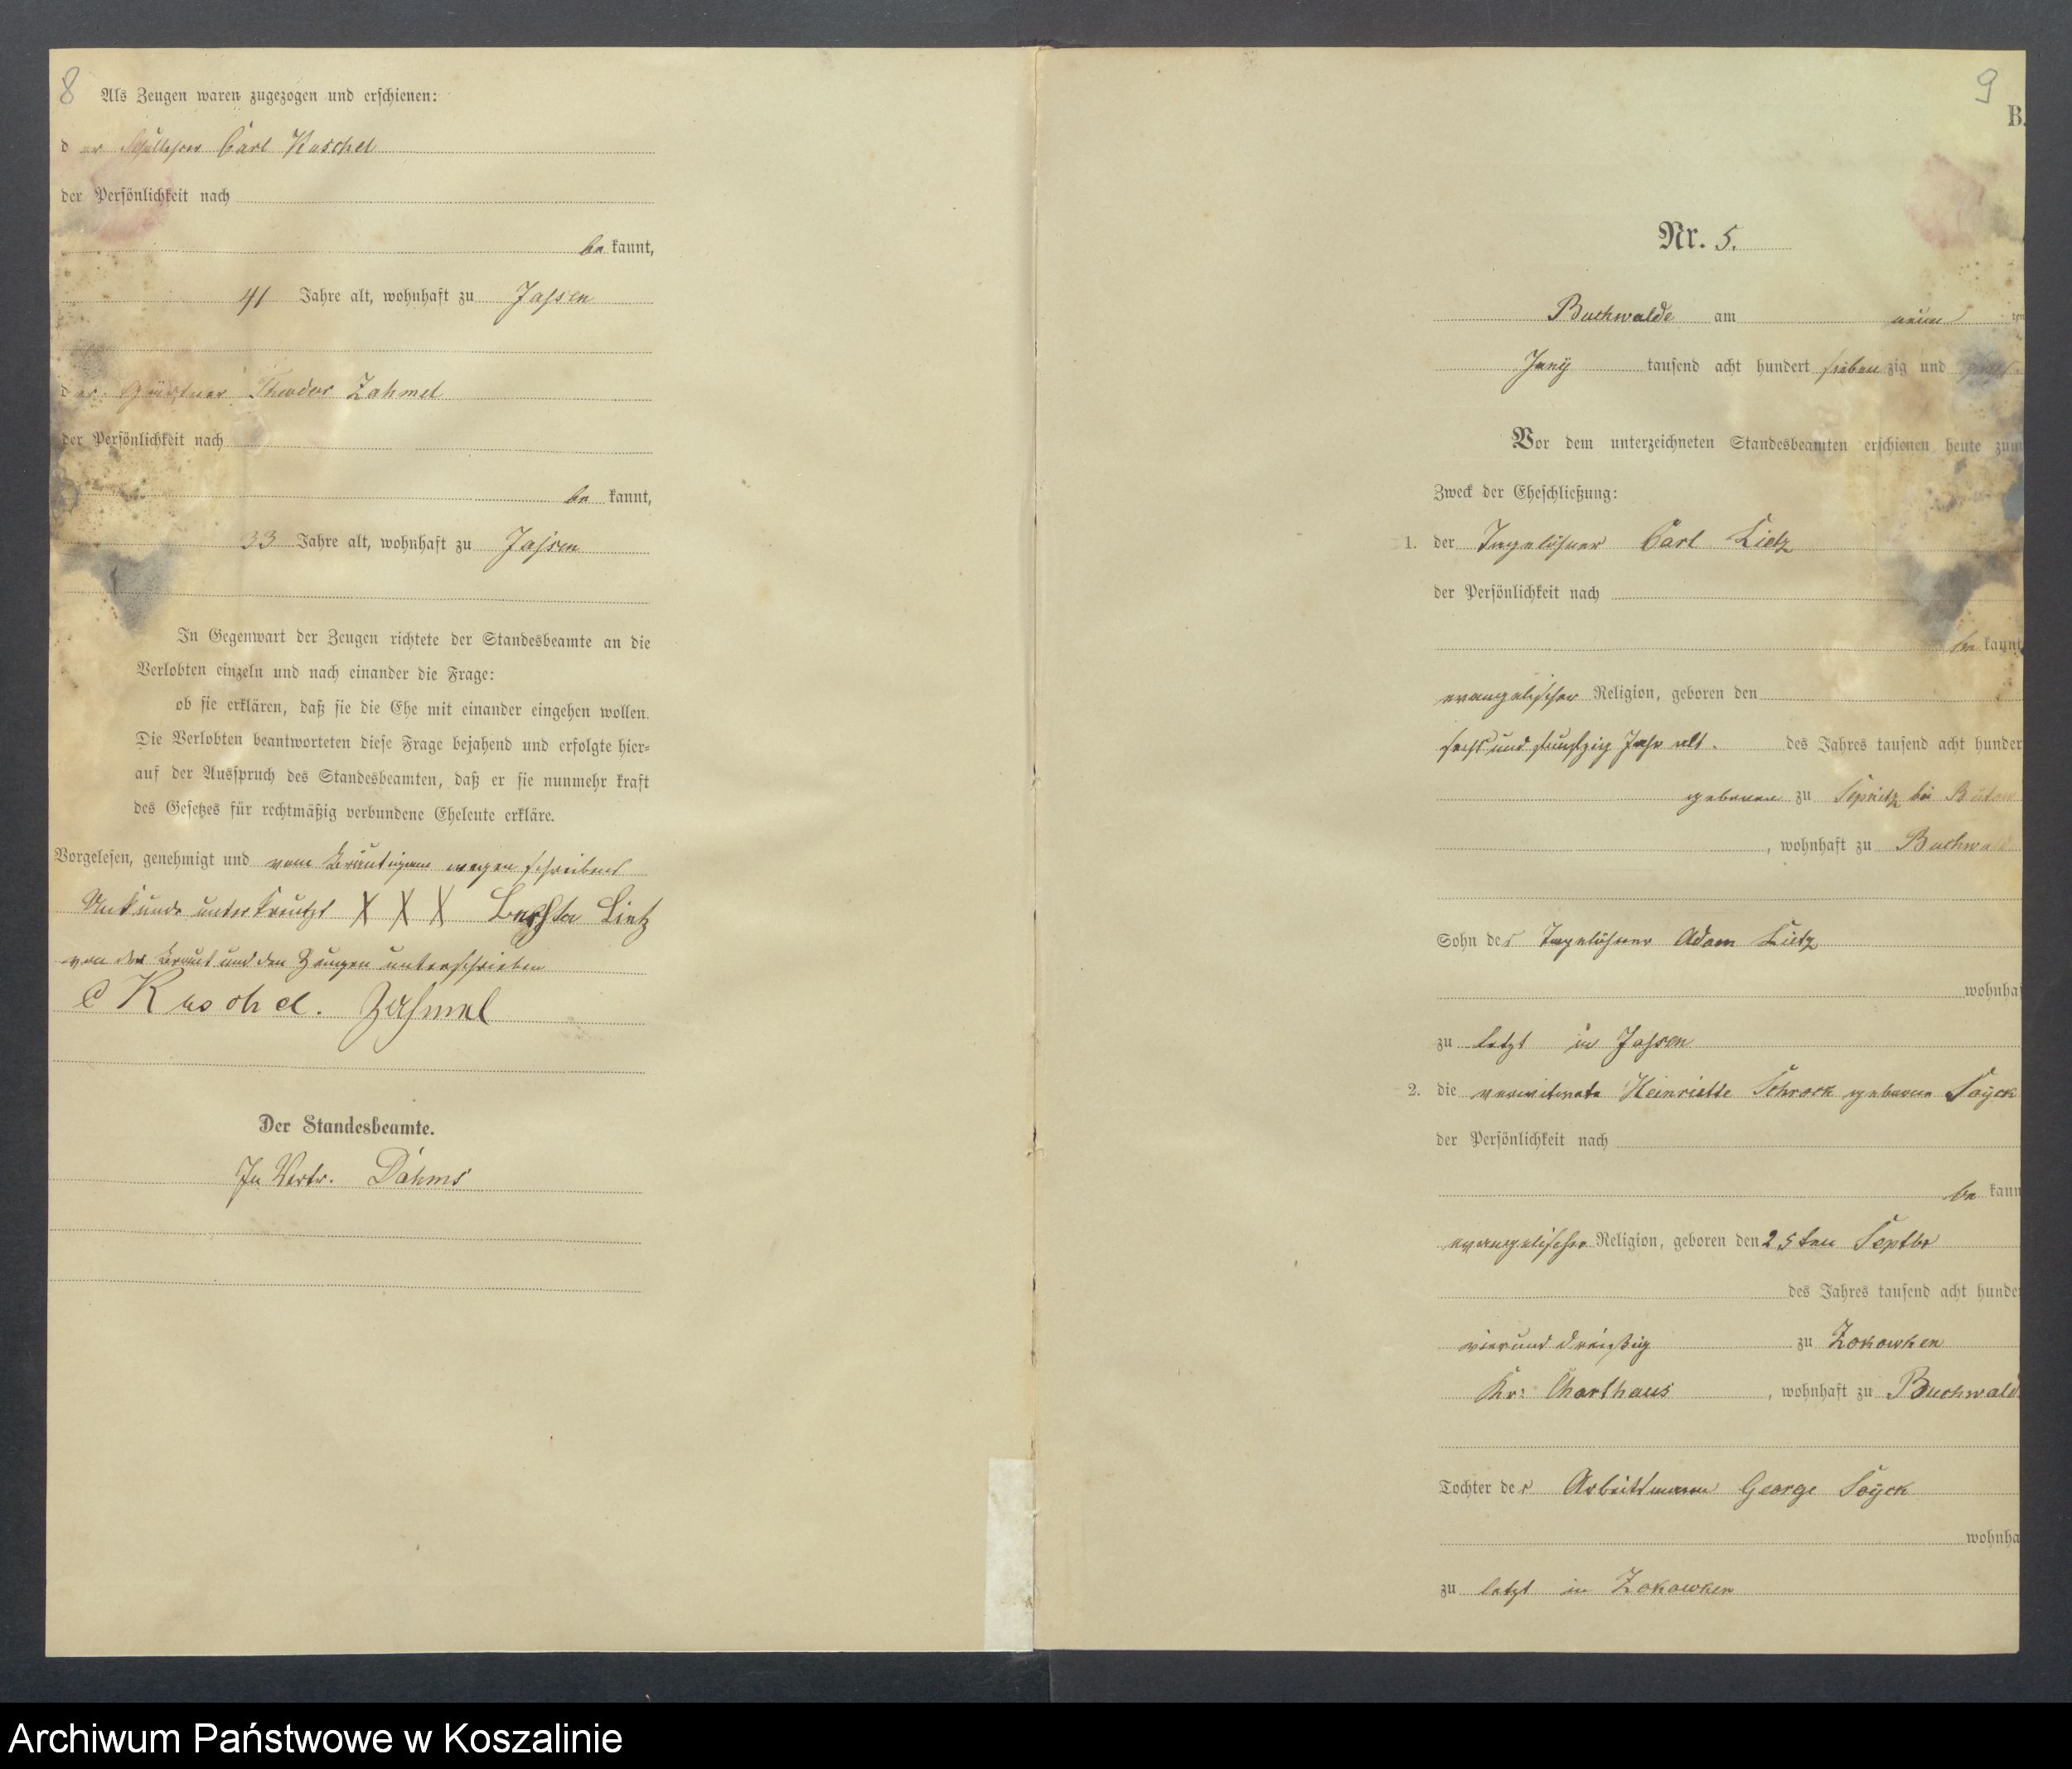 8
Als Zeugen waren zugezogen und erschienen:
der Schullehrer Carl Kuschel
der Persönlichkeit nach
bekannt,
41 Jahre alt, wohnhaft zu Jassen
der Gärtner Theodor Zahmel
der Persönlichkeit nach
bekannt,
33 Jahre alt, wohnhaft zu Jassen
In Gegenwart der Zeugen richtete der Standesbeamte an die
Verlobten einzeln und nach einander die Frage:
ob sie erklären, daß sie die Ehe mit einander eingehen wollen.
Die Verlobten beantworteten diese Frage bejahend und erfolgte hier-
auf der Ausspruch des Standesbeamten, daß er sie nunmehr kraft
des Gesetzes für rechtmäßig verbundene Eheleute erkläre.
Vorgelesen, genehmigt und vom Bräutigam wegen schreibens
Unkunde unterkreutzt X X X Lietz
von der Braut und den Zeugen unterschrieben
C Kuschel. Zahmel
Der Standesbeamte.
In Vertr. Dahms
9
B.
Nr. 5.
Buchwalde am neun ten
Juny tausend acht hundert siebenzig und
Vor dem unterzeichneten Standesbeamten erschienen heute zum
Zweck der Eheschließung:
1. der Tagelöhner Carl Lietz
der Persönlichkeit nach
bekannt
evangelischer Religion, geboren den
sechs und funfzig Jahr alt. des Jahres tausend acht hunder
geboren zu bei Bütow
, wohnhaft zu Buchwald
Sohn des Tagelöhner Adam Lietz
wohnhaf
zu letzt in Jassen
2. die verwitwete Heinriette Schrock geborne Soyck
der Persönlichkeit nach
be kann
evangelischer Religion, geboren den 25ten Septbr
des Jahres tausend acht hunder
vierund dreißig zu Zokowken
Kr: Charthaus, wohnhaft zu Buchwald
Tochter des Arbeitsmann George Soyck
wohnha
zu letzt in Zokowken
Archiwum Państwowe w Koszalinie